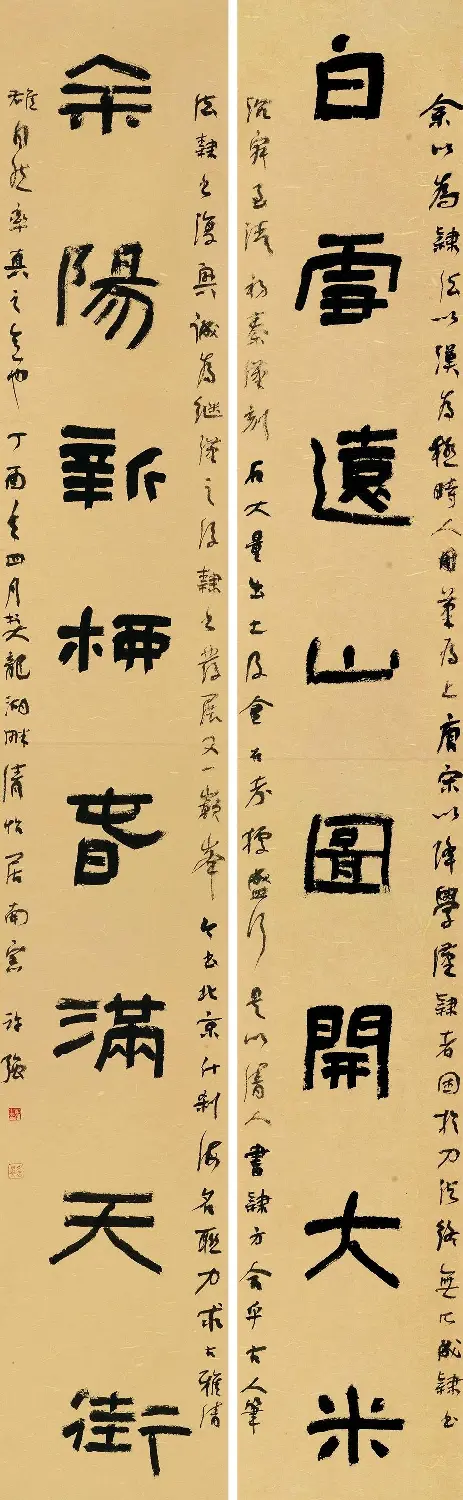 余以為隸法以漢為極時人用筆為上唐宋以降學漢隸者因於刀法終無以成隸書
白雪遠山圖開大米
至清初秦漢刻石大量出土及金石考據盛行是以清人書隸方合乎古人筆
法隸書復興誠為繼漢之後隸書發展又一巔峯今書北京什刹海名聯力求古雅清
余陽新桺旾滿天街
雄自然率真之意也丁酉年四月於龍湖畔清怡居南窗許強